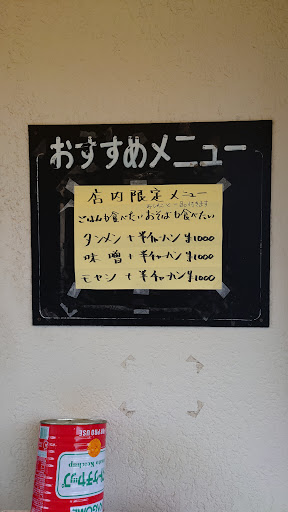 おすすめメニュー
店内限定メニュー
ごはんも食べたいおそばも食べたい
タンメン + 半チャーハン ¥1000
味噌 + 半チャーハン ¥1000
モヤシ + 半チャーハン ¥1000
PRO USE
トマトケチャップ
Tomato Ketchup
KAGOME